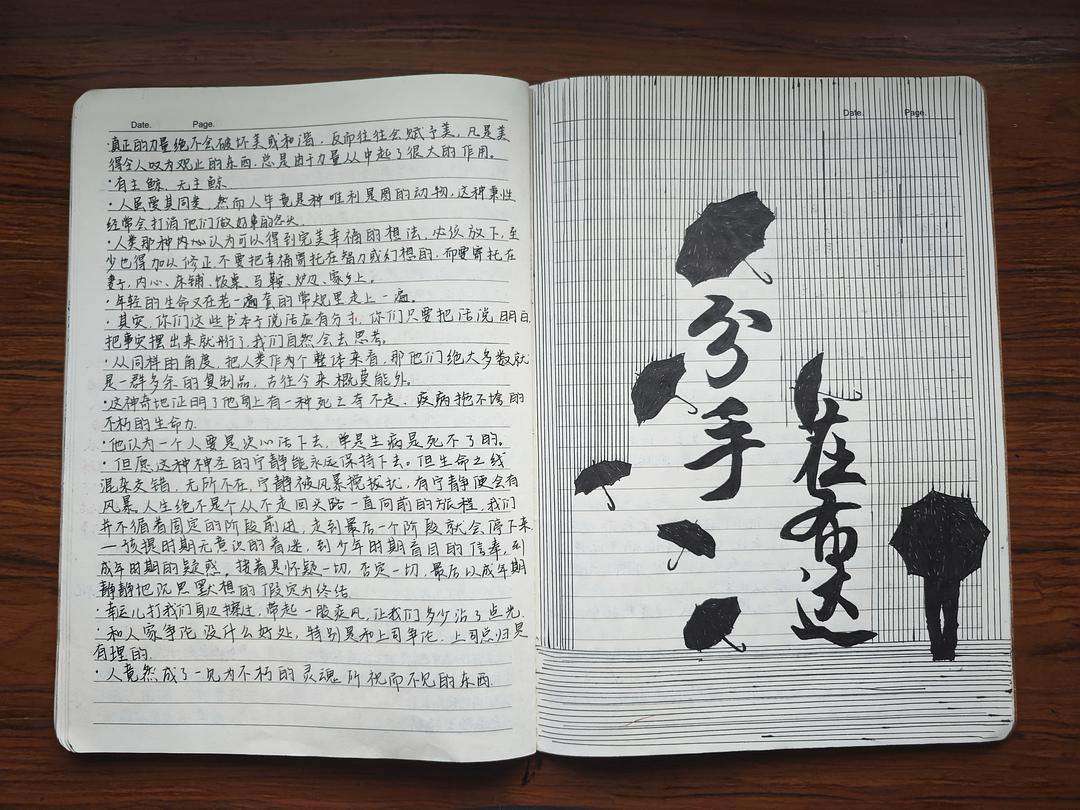 Date. Page.
·真正的力量绝不会破坏美或和谐，反而往往会赋予美，凡是美
得令人叹为观止的东西，总是由于力量从中起了很大的作用。
·有主鲸、无主鲸
·人虽爱其同类，然而人毕竟是种唯利是图的动物，这种秉性
经常会打消他们做好事的念头.
·人类那种内心认为可以得到完美幸福的想法，必须放下，至
少也得加以修正，不要把幸福寄托在智力或幻想的，而要寄托在
妻子、内心、床铺、饭桌、马鞍、炉边、家乡上。
·年轻的生命又在老一套的常规里走上一遍。
·其实，你们这些书本子说法应有分寸，你们只要把话说明白
把事实摆出来就行了，我们自然会去思考。
·从同样的角度，把人类作为个整体来看，那他们绝大多数就
是一群多余的复制品，古往今来概莫能外。
·这神奇地证明了他身上有一种死亡夺不走、疾病拖不垮的
不朽的生命力.
·他认为一个人要是决心活下去，单是生病是死不了的。
·但愿这种神圣的宁静能永远保持下去。但生命之线
混杂交错，无所不在，宁静被风暴搅扰，有宁静便会有
风暴。人生绝不是个从不走回头路一直向前的旅程，我们
并不循着固定的阶段前进，走到最后一个阶段就会停下来
—孩提时期无意识的着迷，到少年时期盲目的信奉，到
成年时期的疑惑，接着是怀疑一切，否定一切，最后以成年期
静静地沉思默想的假定为终结.
·幸运儿打我们身边擦过，带起一股疾风，让我们多少沾了点光.
·和人家争论没什么好处，特别是和上司争论，上司总归是
有理的.
·人竟然成了一见为不朽的灵魂所视而不见的东西.
Date. Page.
分手
在布达